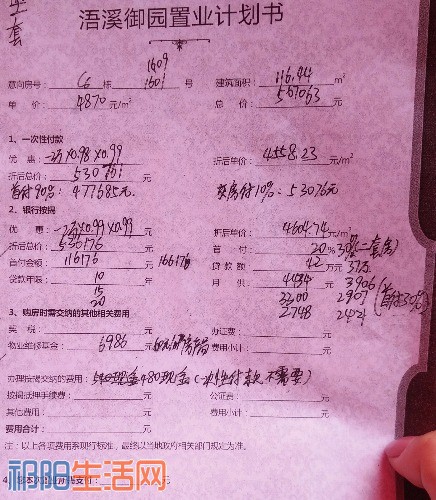 浯溪御园置业计划书
套
1609
意向房号: C6 栋 1601 号 建筑面积: 116.94 m²
单 价: 4870 元/m² 总 价: 567063 元
1、一次性付款
优 惠: -2万×0.98×0.99 折后单价: 4558.23 元
折后总价: 530761 元
首付90%: 477685元. 交房付10%: 53076元
2、银行按揭
优 惠: -2万×0.99×0.99 折后单价: 4604.74 元
折后总价: 536176 元 首 付: 20% 30%(二套房)
首付金额: 116176 元 166176 贷 款 额: 42万 元 37万
贷款年限: 10 年 月 供: 4434 元 3906
15 3300 2907 (首付30%)
20 2748 2421
3、购房时需交纳的其他相关费用
契 税: 元 办证费: 元
物业维修基金: 6986 元 费用小计: 元
办理按揭交纳的费用: 现金+80现金(一次性付款不需要)
按揭抵押手续费: 元 公证费: 元
其他费用: 元 费用小计: 元
费用合计: 元
注:以上各项费用系现行标准,最终以当地政府相关部门规定为准。
祁阳生活网